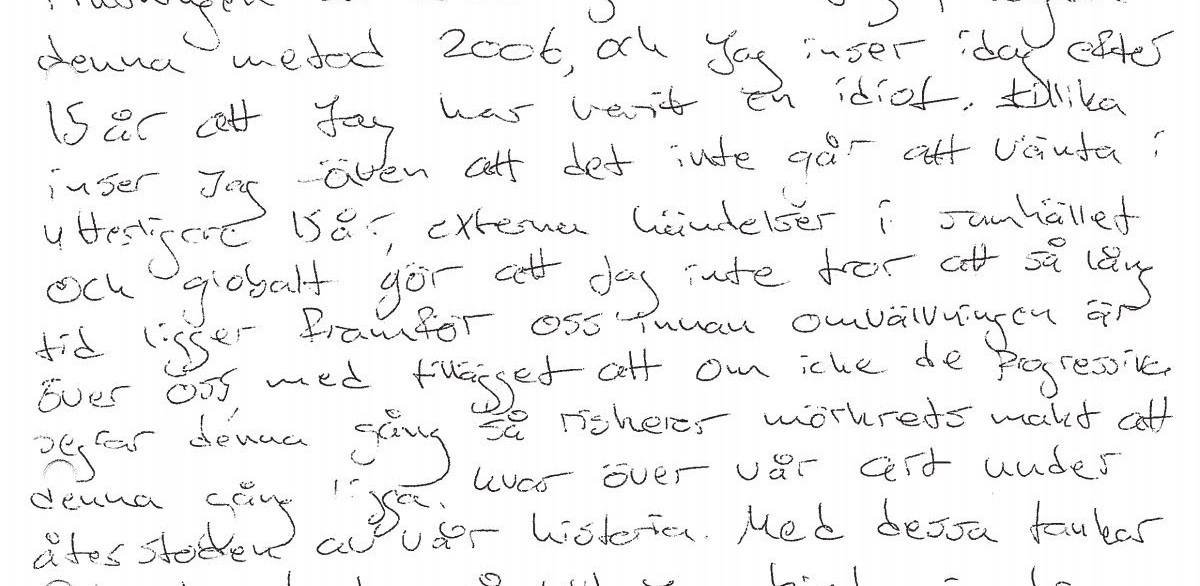 denna metod 2006, och Jag inser idag efter
15 år att Jag har varit en idiot. tillika
inser Jag även att det inte går att vänta i
ytterligare 15 år, externa händelser i samhället
och globalt gör att Jag inte tror att så lång
tid ligger framför oss innan omvälvningen är
över oss med tillägget att om icke de Progressiva
segrar denna gång så riskerar mörkrets makt att
denna gång ligga kvar över vår art under
återstoden av vår historia. Med dessa tankar